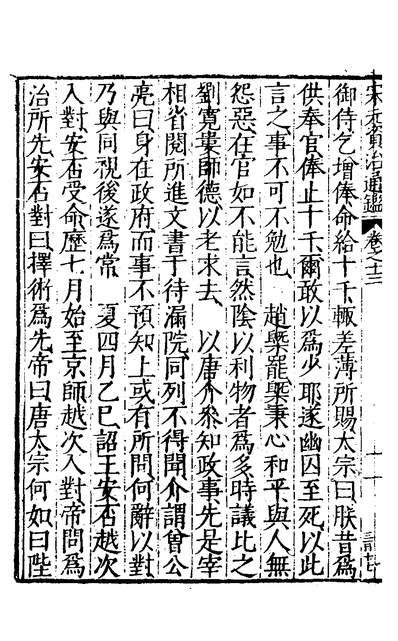 宋元資治通鑑 卷之十三
御侍乞增俸命給十千輒差薄所賜太宗曰朕昔爲
供奉官俸止十千爾敢以爲少耶遂幽囚至死以此
言之事不可不勉也 趙槩罷槩秉心和平與人無
怨惡在官如不能言然陰以利物者爲多時議比之
劉寬婁師德以老求去 以唐介參知政事先是宰
相省閱所進文書于待漏院同列不得聞介謂曾公
亮曰身在政府而事不預知上或有所問何辭以對
乃與同視後遂爲常 夏四月乙巳詔王安石越次
入對安石受命歷七月始至京師越次入對帝問爲
治所先安石對曰擇術爲先帝曰唐太宗何如曰陛